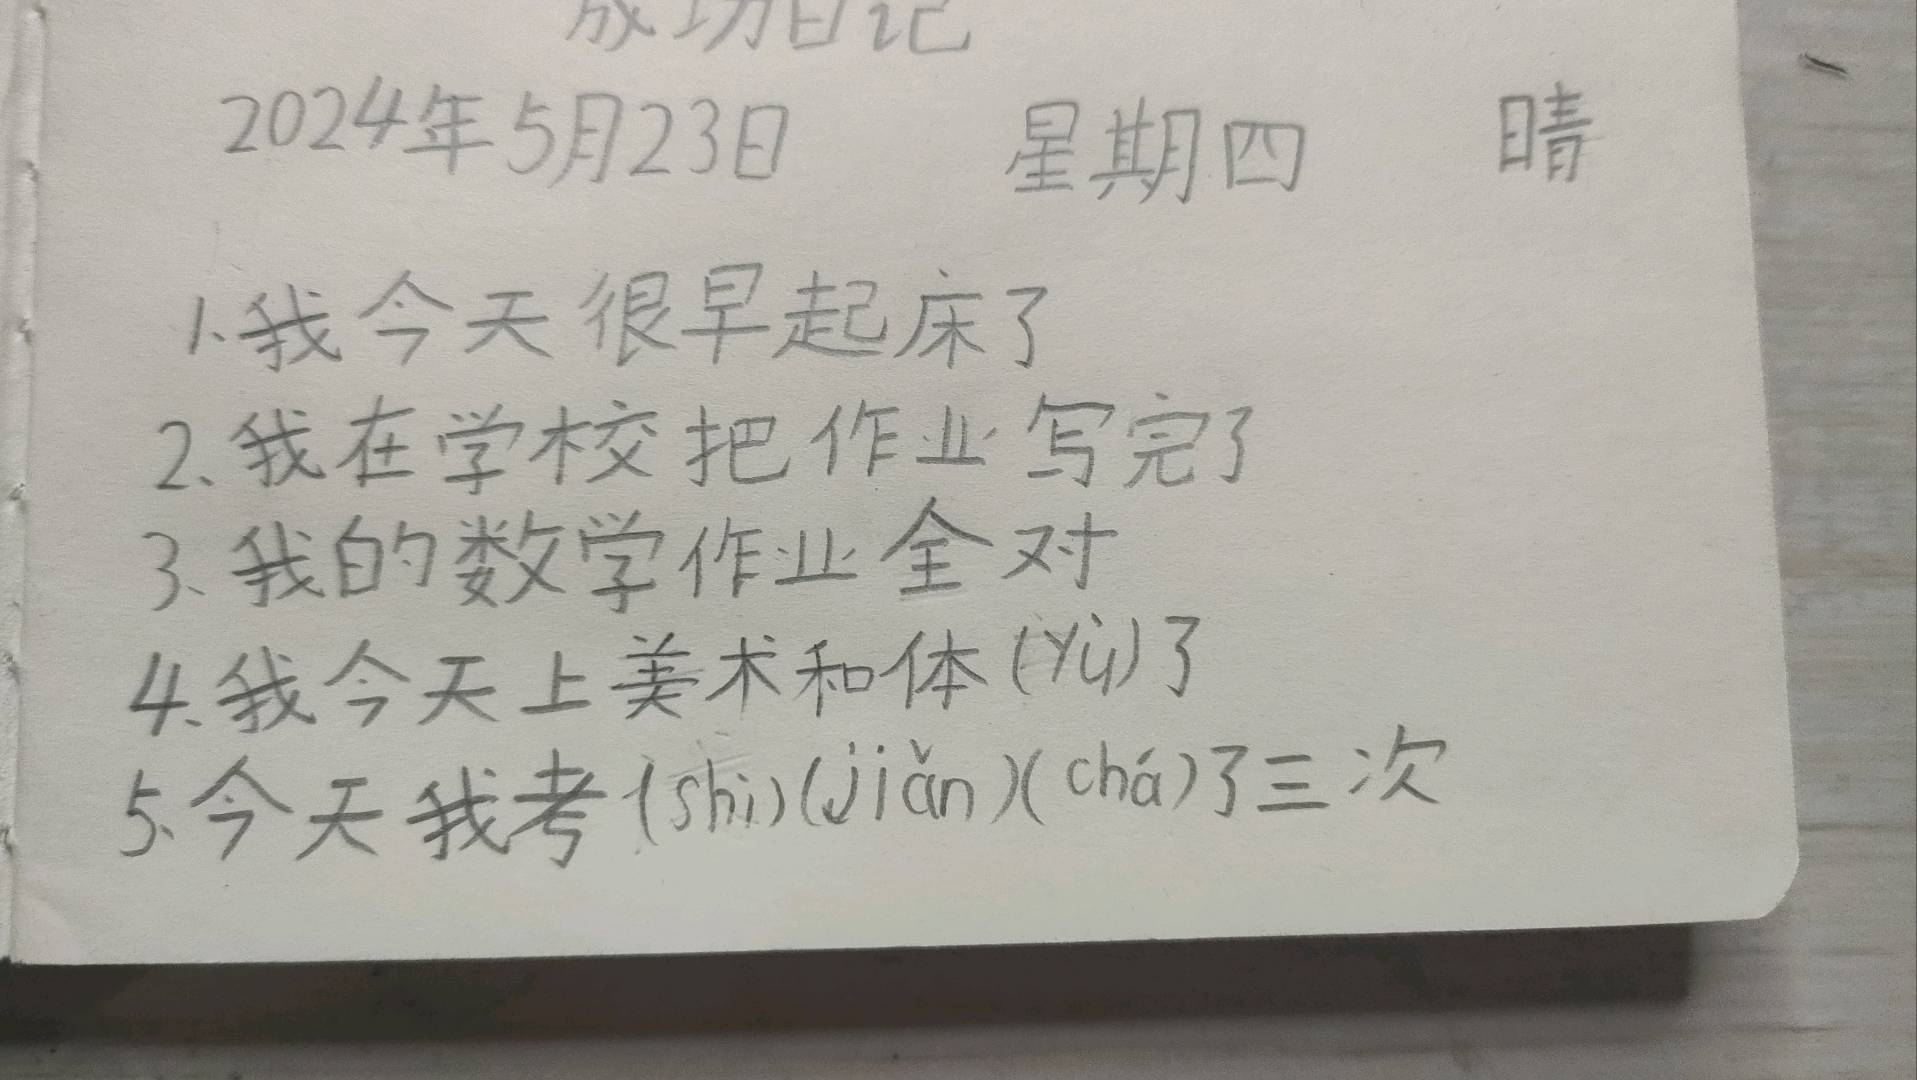 成功日记
2024年5月23日 星期四 晴
1.我今天很早起床了
2.我在学校把作业写完了
3.我的数学作业全对
4.我今天上美术和体(yù)了
5.今天我考(shì)(jiǎn)(chá)了三次